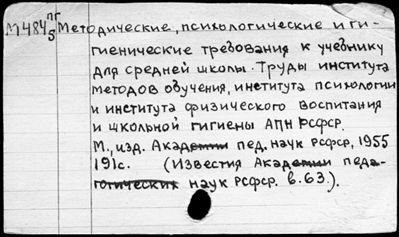 М484/5 пг Методические, психологические и ги-
гиенические требования к учебнику
для средней школы. Труды института
методов обучения, института психологии
и института физического воспитания
и школьной гигиены АПН РСФСР.
М., изд. Академии пед. наук РСФСР, 1955
191с. (Известия Академии педа-
гогических наук РСФСР. в. 63.).